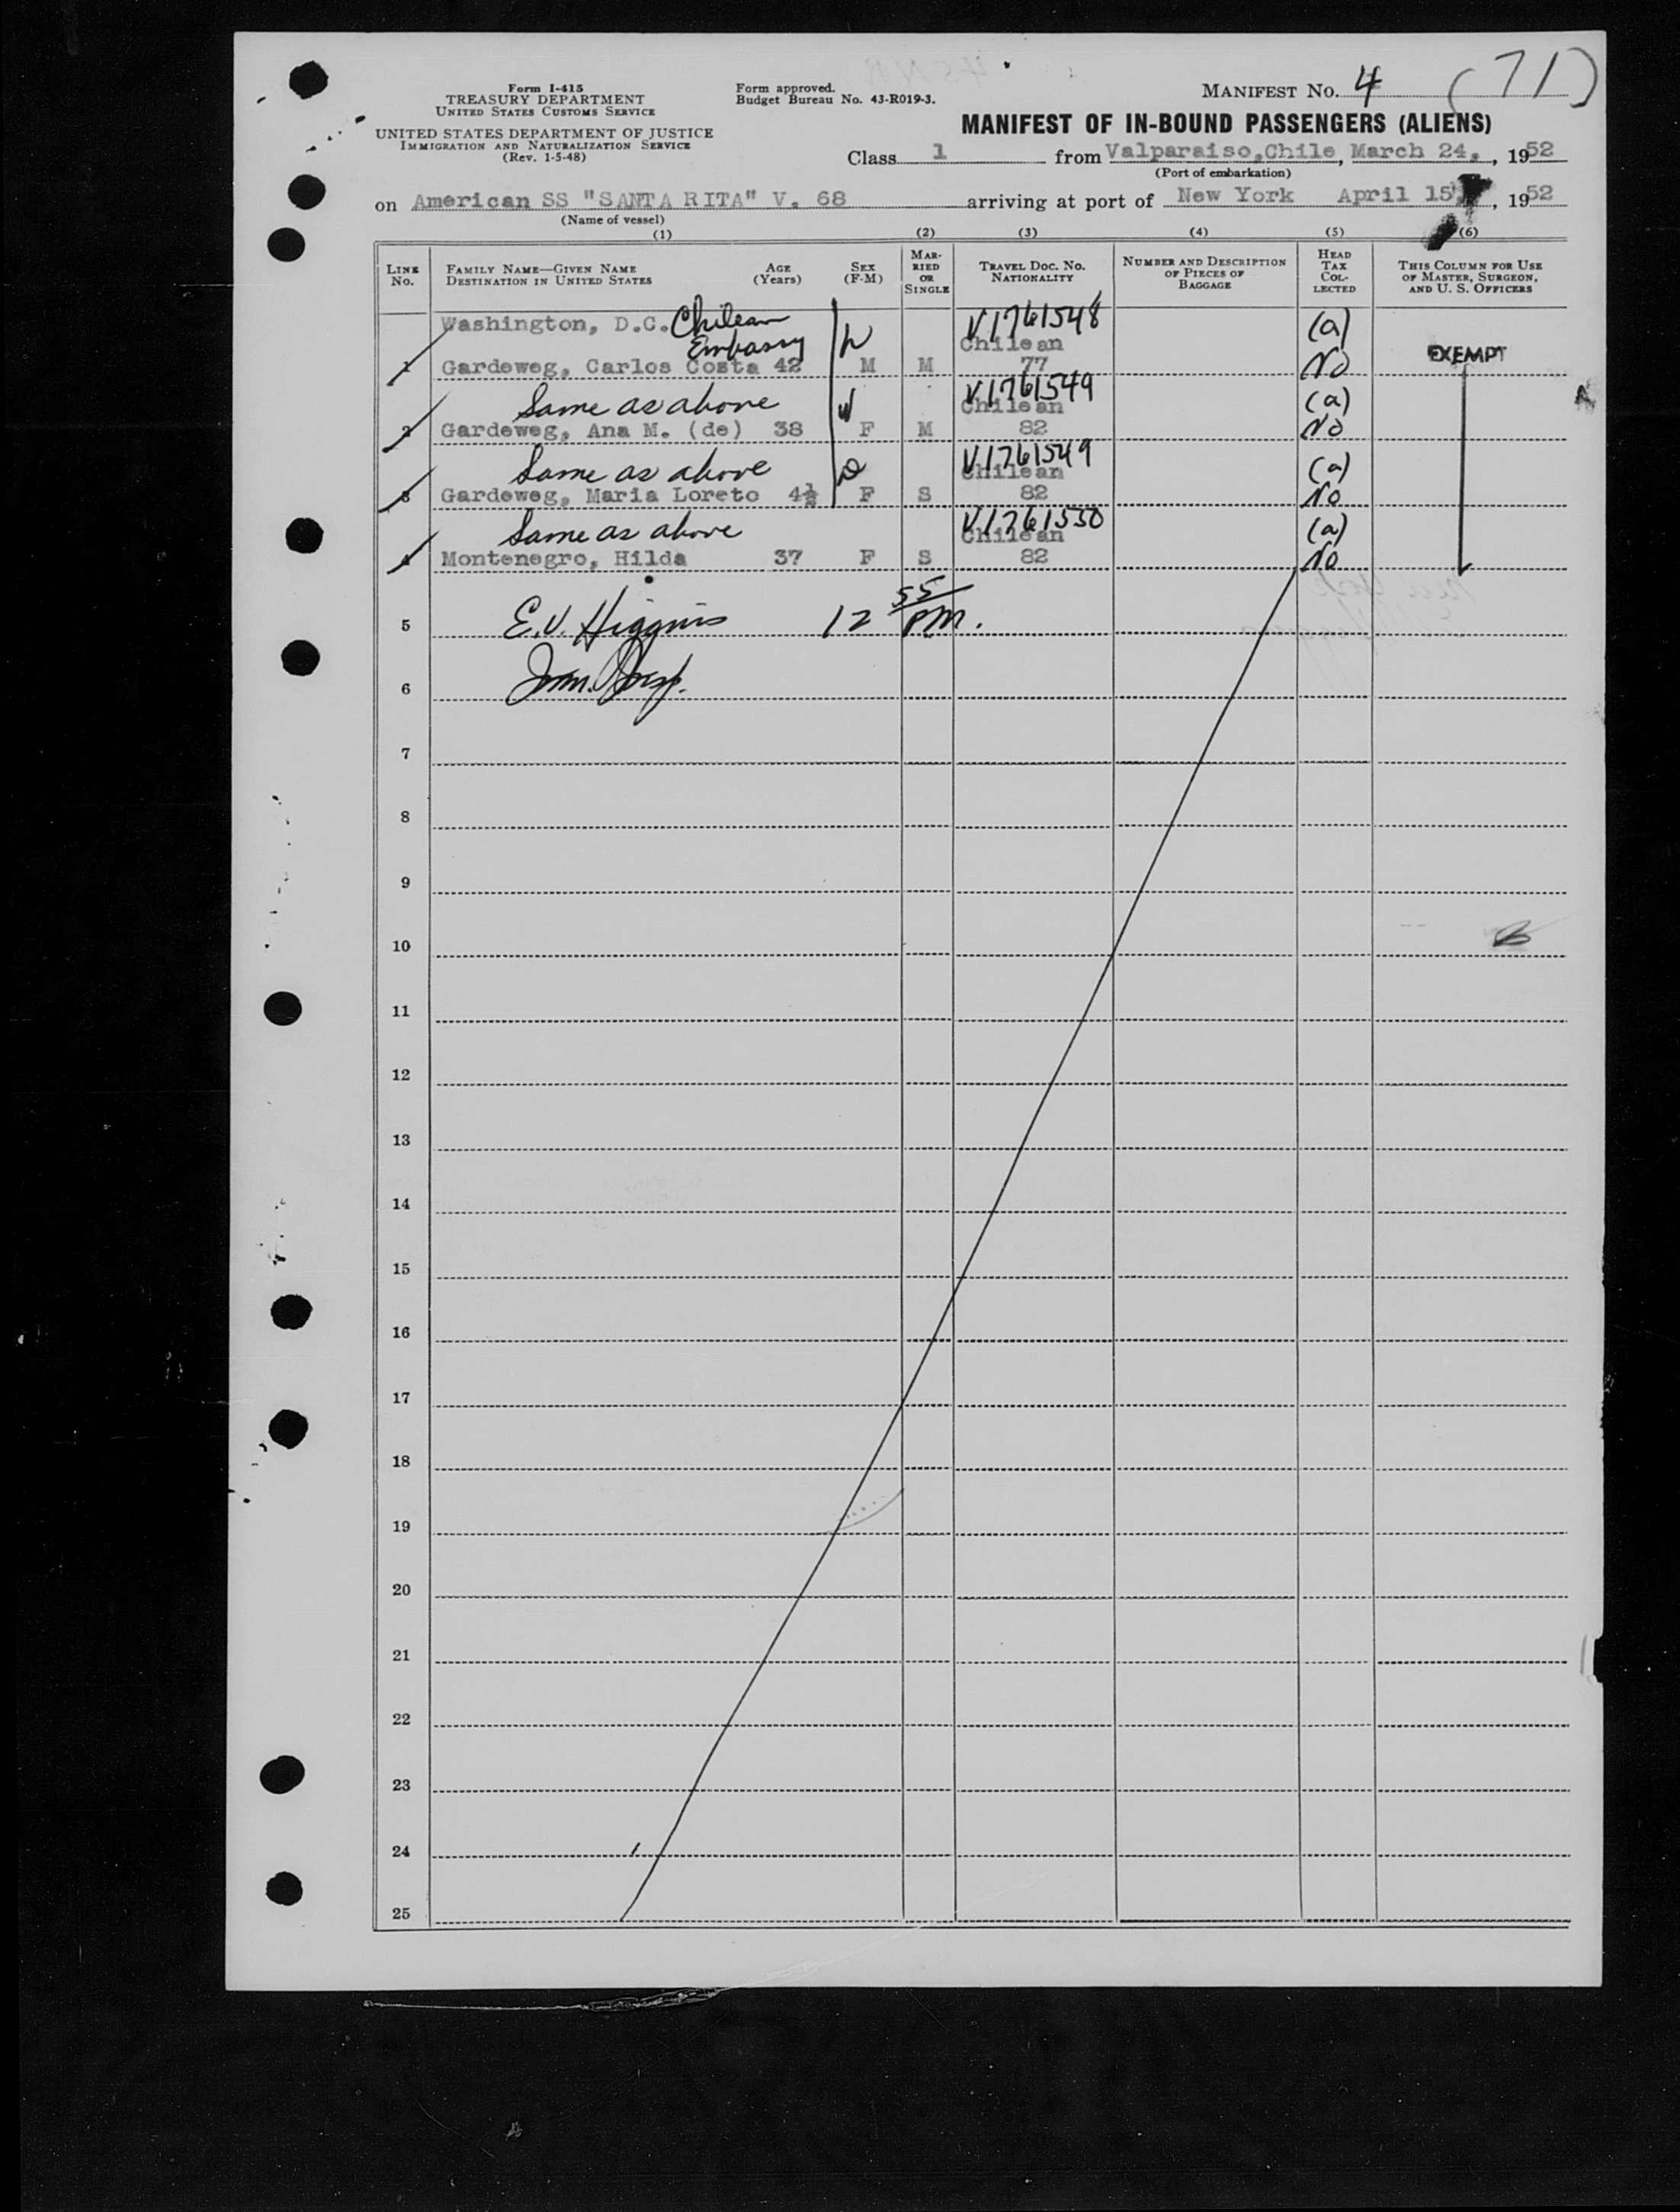 Form I-415
TREASURY DEPARTMENT
UNITED STATES CUSTOMS SERVICE
UNITED STATES DEPARTMENT OF JUSTICE
IMMIGRATION AND NATURALIZATION SERVICE
(Rev. 1-5-48)
Form approved.
Budget Bureau No. 43-R019-3.
MANIFEST NO. 4 (71)
MANIFEST OF IN-BOUND PASSENGERS (ALIENS)
Class 1 from Valparaiso, Chile, March 24, , 1952
(Port of embarkation)
on American SS "SANTA RITA" V. 68 arriving at port of New York April 15, 1952
(Name of vessel)
(1) (2) (3) (4) (5) (6)
LINE No. FAMILY NAME—GIVEN NAME DESTINATION IN UNITED STATES AGE (Years) SEX (F-M) MARRIED OR SINGLE TRAVEL DOC. NO. NATIONALITY NUMBER AND DESCRIPTION OF PIECES OF BAGGAGE HEAD TAX COLLECTED THIS COLUMN FOR USE OF MASTER, SURGEON, AND U. S. OFFICERS
Washington, D.C. Chilean Embassy V1761548 (a)
Chilean
1 Gardeweg, Carlos Costa 42 M M 77 No EXEMPT
Same as above V1761549 (a)
Chilean
2 Gardeweg, Ana M. (de) 38 F M 82 No
Same as above V1761549 (a)
Chilean
3 Gardeweg, Maria Loreto 4½ F S 82 No
Same as above V1761550 (a)
Chilean
4 Montenegro, Hilda 37 F S 82 No
5 E.V. Higgins 12 55 PM.
6 Imm. Insp.
7
8
9
10
11
12
13
14
15
16
17
18
19
20
21
22
23
24
25